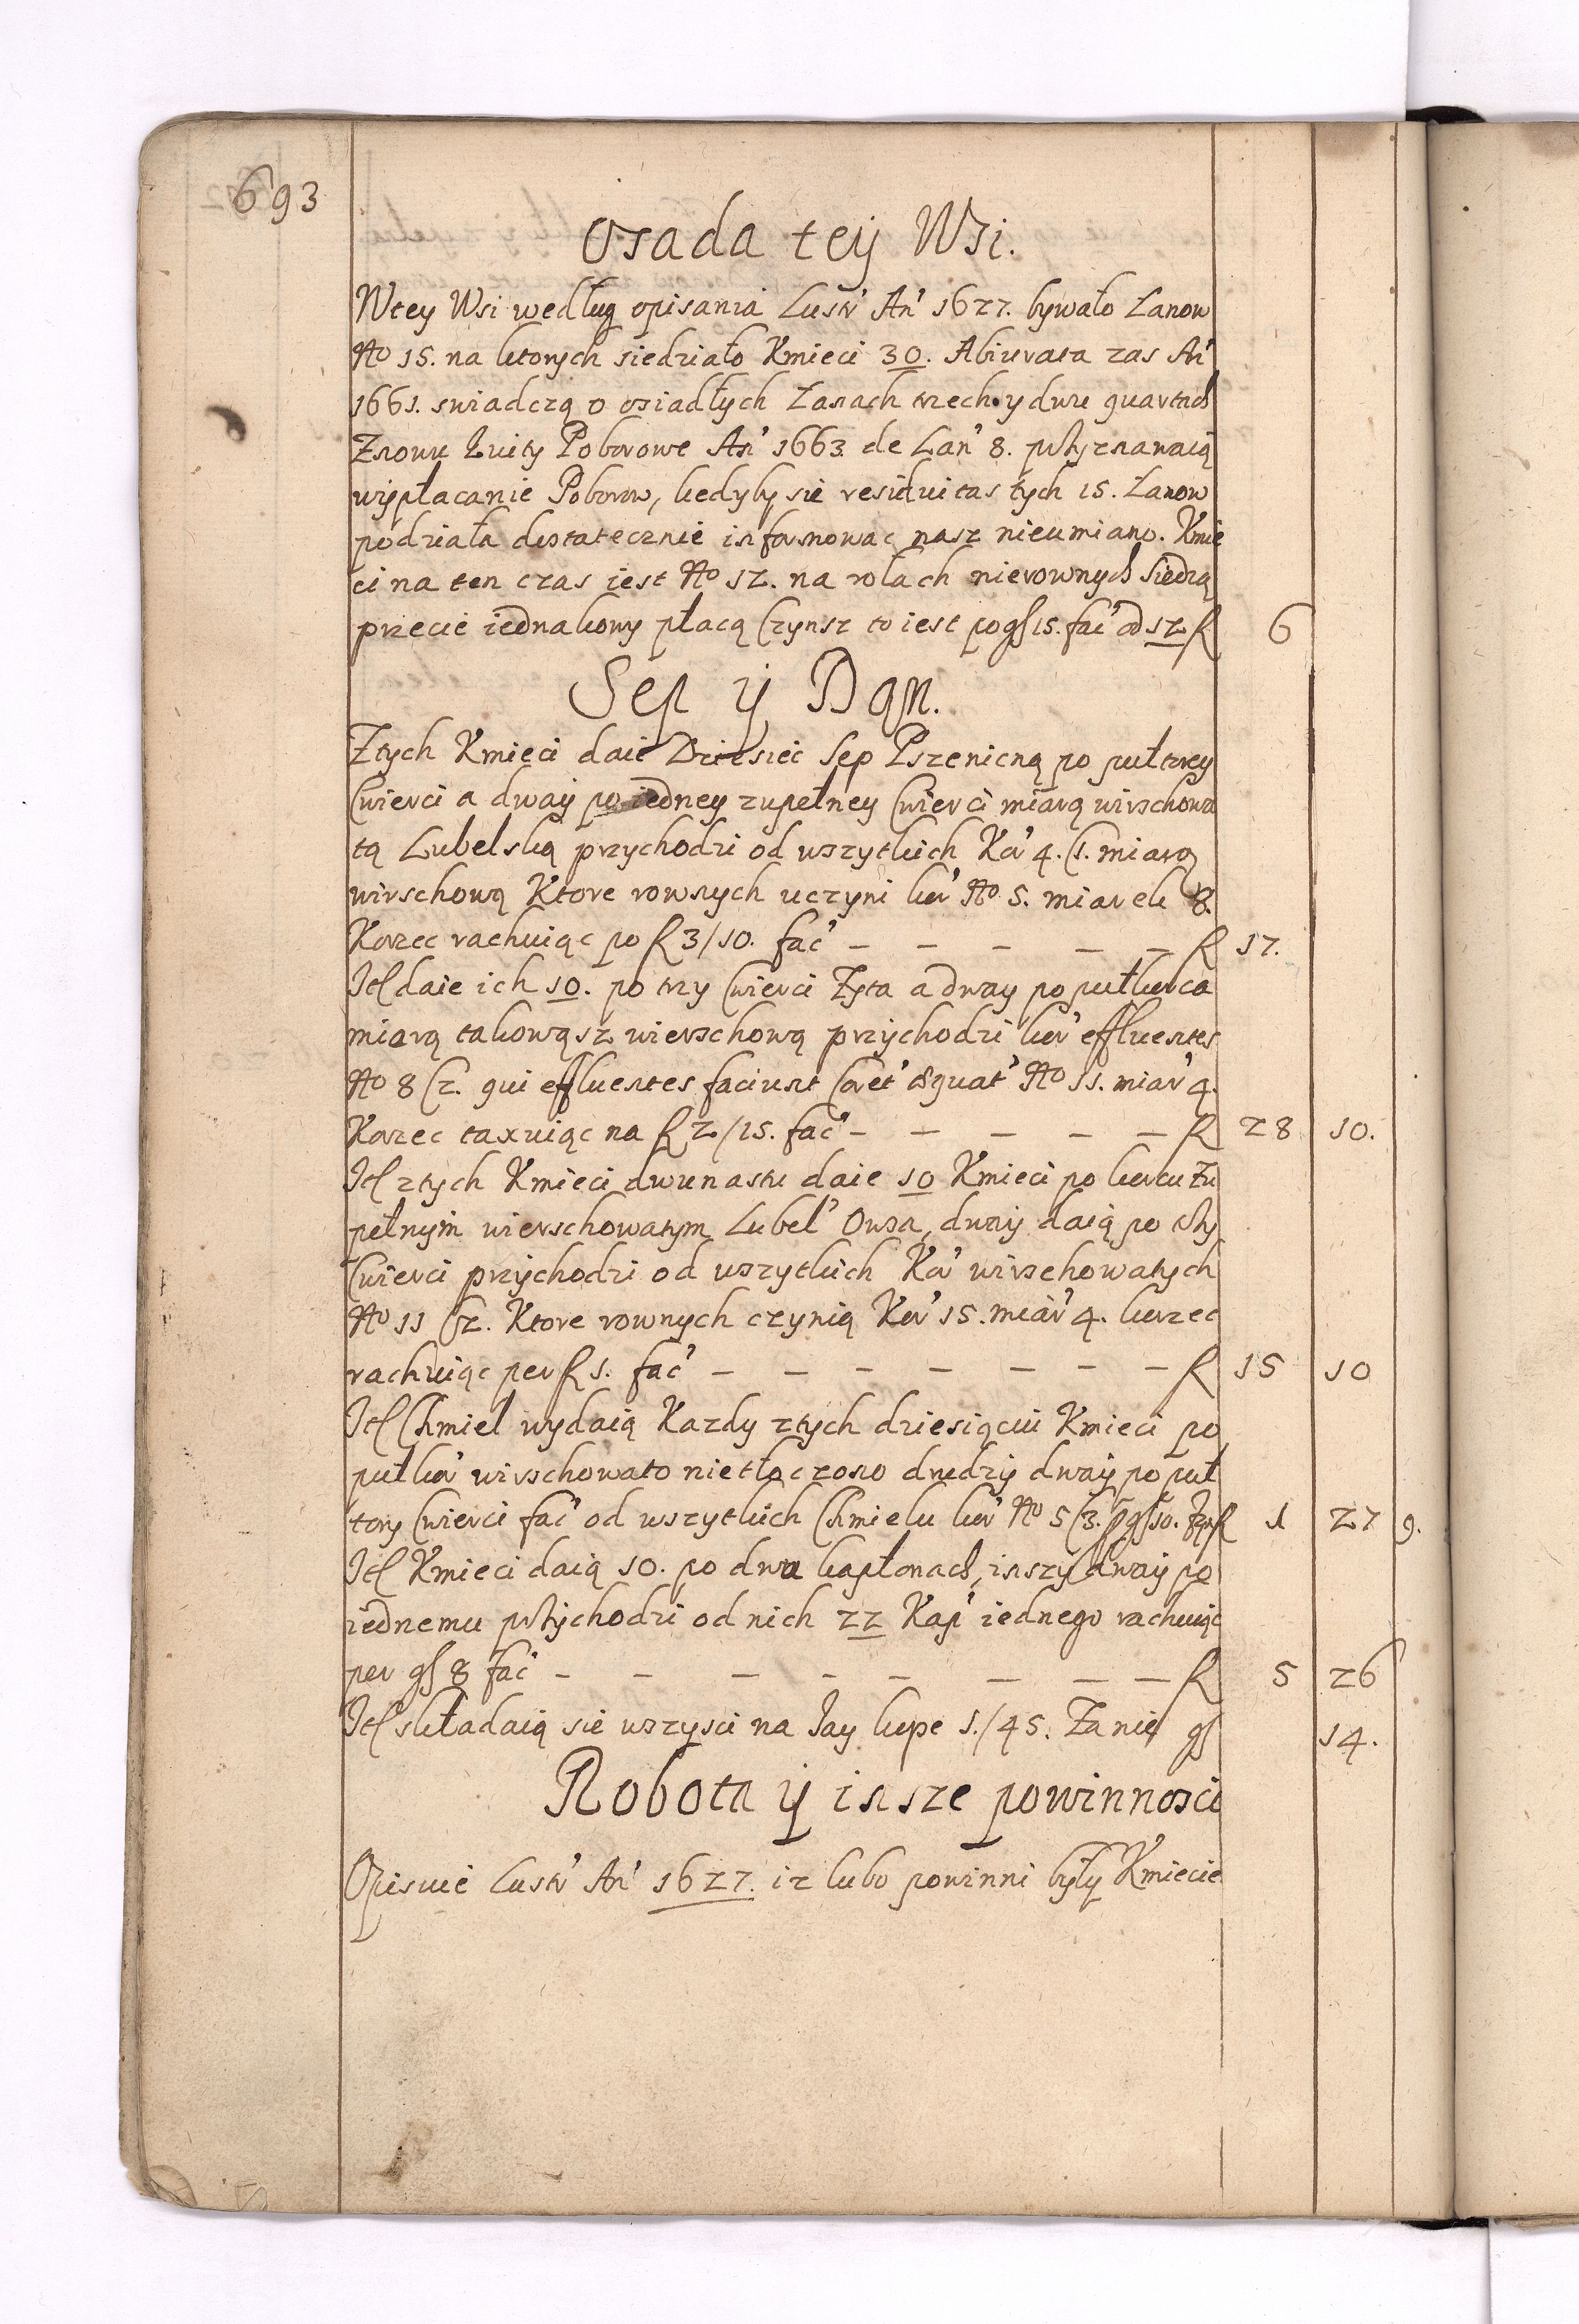 693
Osada tey Wsi.
Wtey Wsi według opisania Lustr' An' 1627. bywało Lanow
No 15. na ktorych siedziało Kmieci 30. Abiurata zas An'
1661. swiadczą o osiadłych Lanach trzech y dwu quartach
Znowu kwity Poborowe An' 1663 de Lan' 8. przyznawaią
wypłacanie Poborow, kedyby sie residuitas tych 15. Lanow
podziała dostatecznie informowac nasz nieumiano. Kmie
ci na ten czas iest No 12. na rolach nierownych siedzą
przecie iednakowy płacą Czynsz to iest po gſ 15. fac' od 12 fl 6
Sep y Dan.
Ztych Kmieci daie Dziesiec Sep Pszeniczną po puł trzey
Cwierci a dway po iedney zupełney Cwierci miarą wirschowa
tą Lubelską przychodzi od wszytkich Kor' 4. C 1. miarą
wirschową Ktore rownych uczyni kor' No 5. miarek 8.
Korzec rachuiąc po fl 3/10. fac' — — — — — fl 17.
Itſ daie ich 10. po trzy Cwierci Zyta a dway po puł korca
miarą takowąsz wierschową przychodzi kor' effluentes
No 8 C 2. qui effluentes faciunt Coret' æquat' No 11. miar' 4.
Korzec taxuiąc na fl 2/15. fac' — — — — — fl 28 10.
Itſ ztych Kmieci dwunastu daie 10 Kmieci po korcu Zu
pełnym wierschowatym Lubel' Owsa, dway daią po trzy
Cwierci przychodzi od wszytkich Kor' wirschowatych
No 11 C 2. Ktore rownych czynią Kor' 15. miar' 4. korzec
rachuiąc per fl 1. fac' — — — — — — — fl 15 10
Itſ Chmiel wydaią Kazdy ztych dziesiąciu Kmieci po
puł kor' wirschowato nietłoczono drudzy dway po puł
tory Cwierci fac' od wszytkich Chmielu kor' No 5 C 3. p gſ 10. fl 1 27 9.
Itſ Kmieci daią 10. po dwa kapłonach, inszy dway po
iednemu przychodzi od nich 22 Kap' iednego rachuiąc
per gſ 8 fac' — — — — — — — — fl 5 26
Itſ składaią sie wszysci na Jay kupe 1./45. Za nie gſ 14.
Robota y insze powinnosci
Opisuie Lustr' An' 1627. iz lubo powinni były Kmiecie